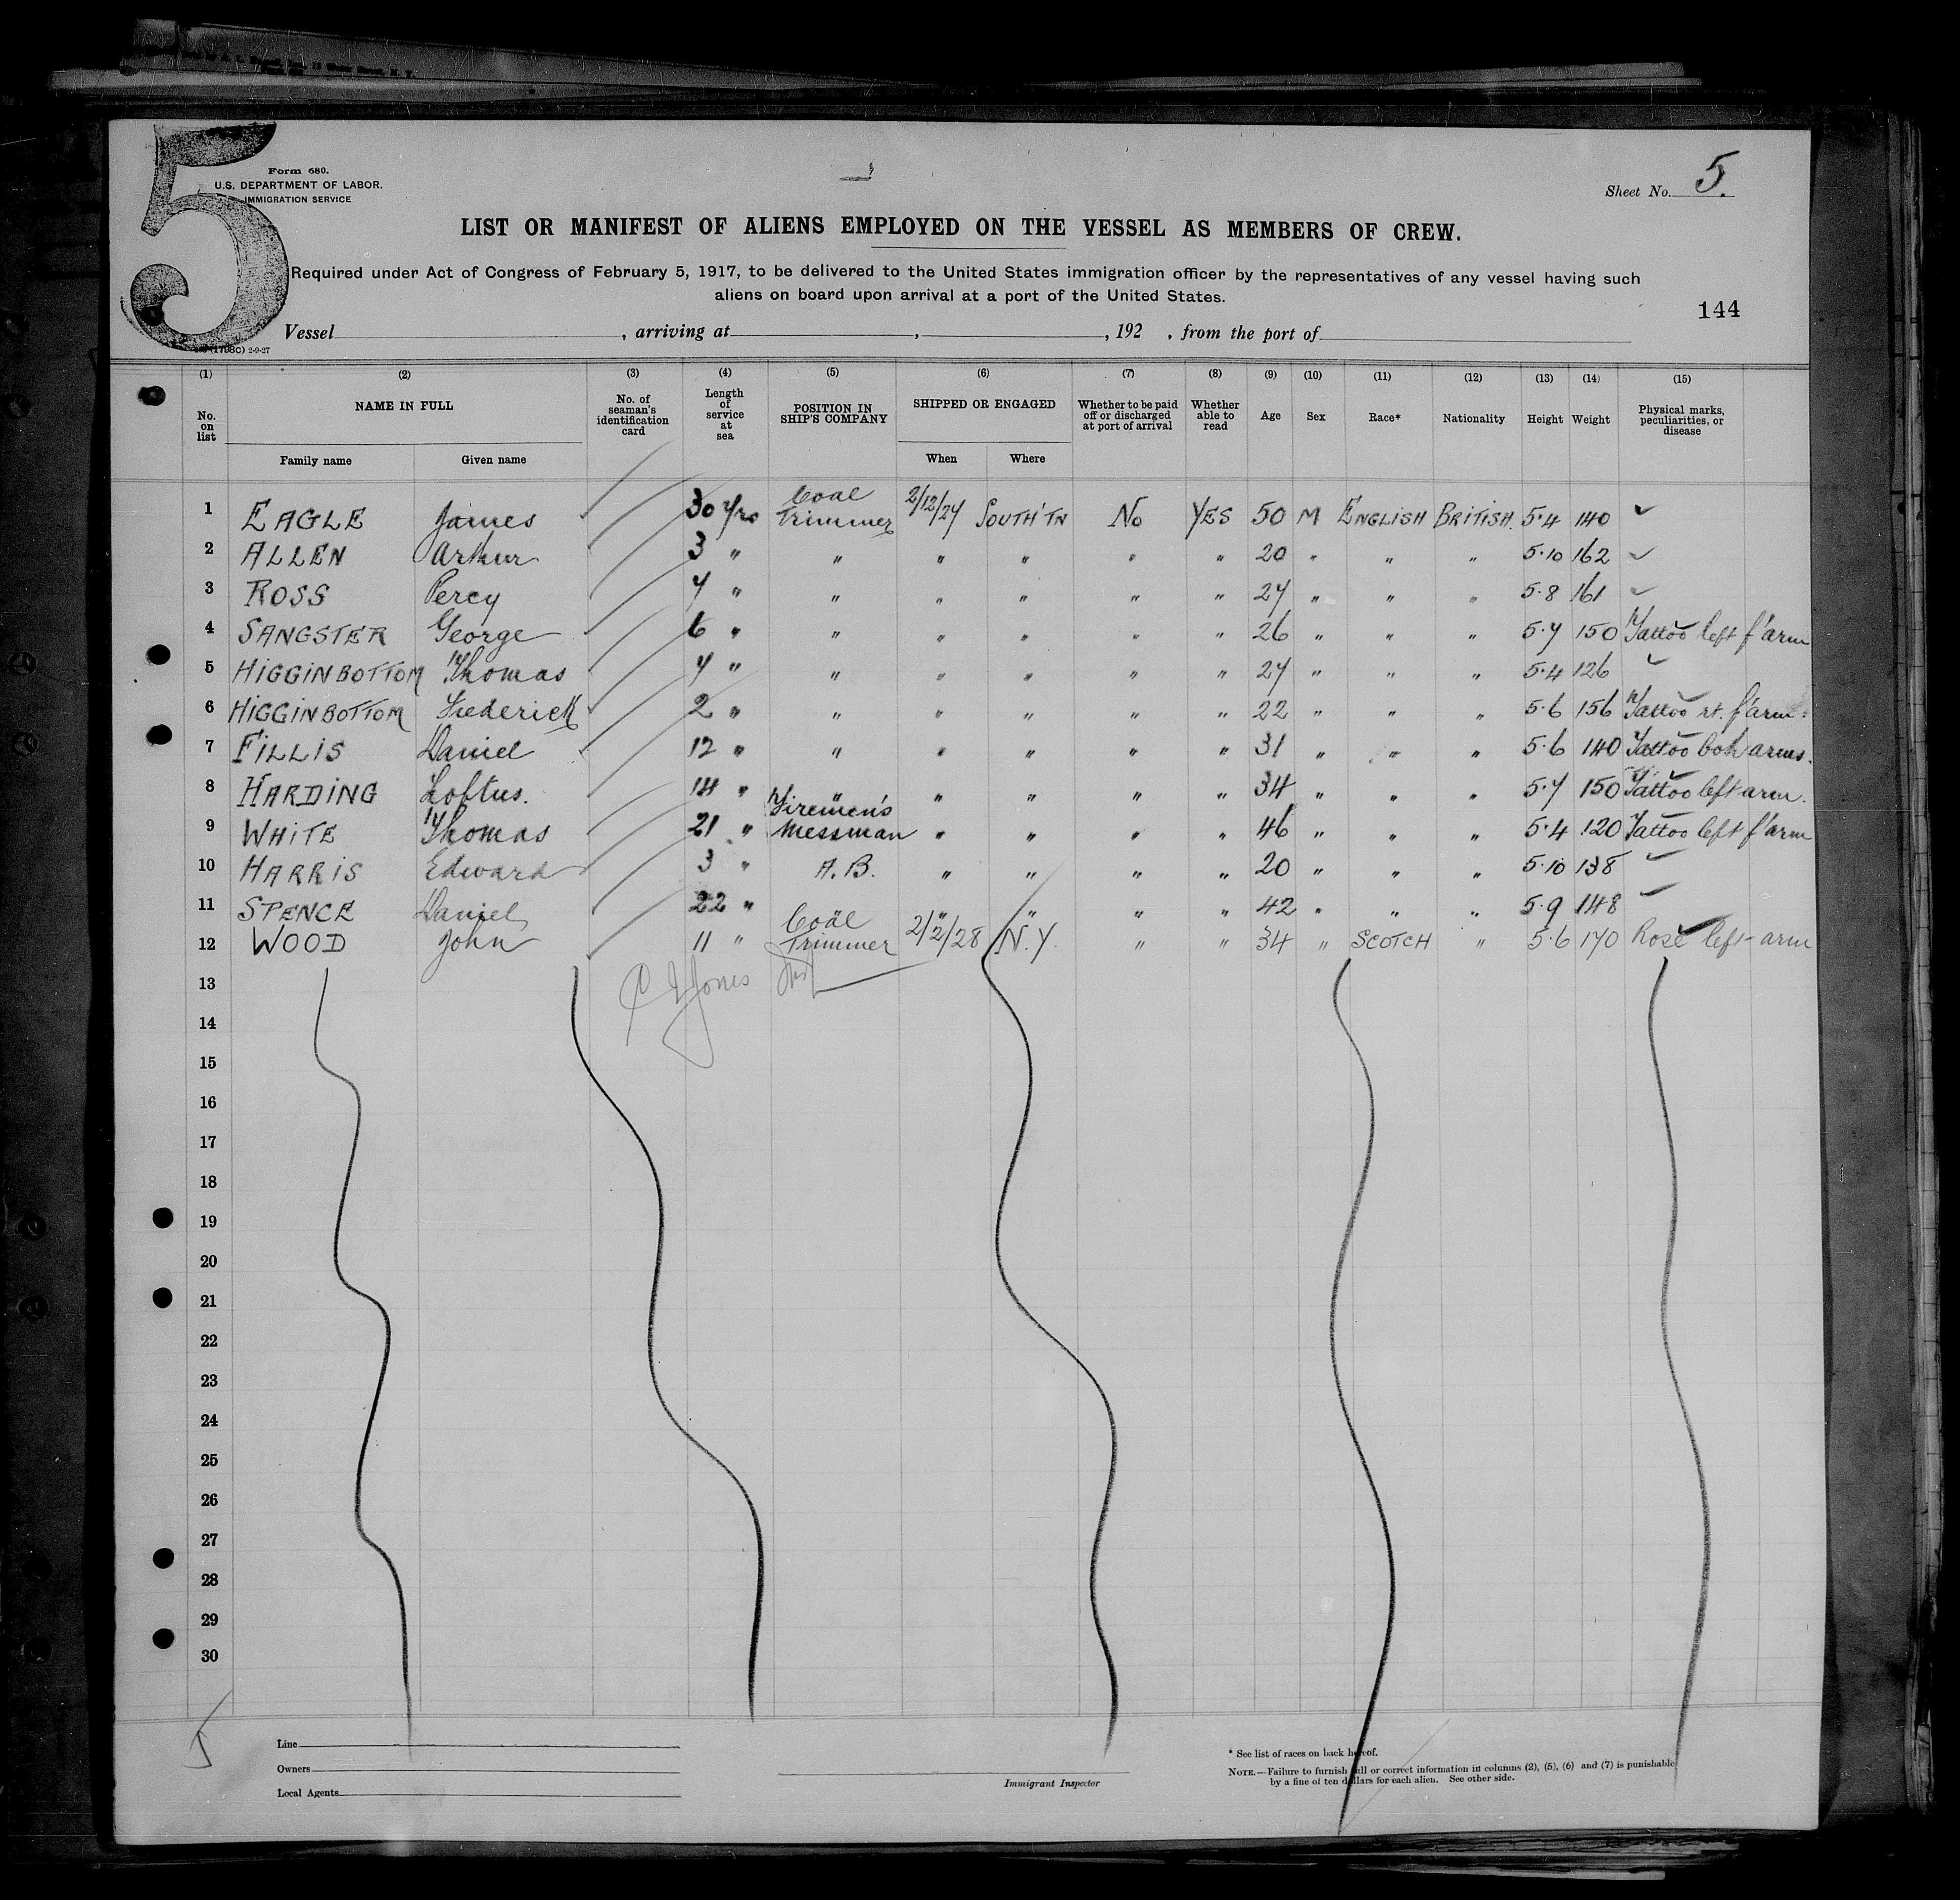 5
Form 680.
U.S. DEPARTMENT OF LABOR.
IMMIGRATION SERVICE
Sheet No. 5.
LIST OR MANIFEST OF ALIENS EMPLOYED ON THE VESSEL AS MEMBERS OF CREW.
Required under Act of Congress of February 5, 1917, to be delivered to the United States immigration officer by the representatives of any vessel having such
aliens on board upon arrival at a port of the United States.
144
Vessel , arriving at , , 192 , from the port of
(1798C) 2-9-27
(1) (2) (3) (4) (5) (6) (7) (8) (9) (10) (11) (12) (13) (14) (15)
No. on list NAME IN FULL No. of seaman's identification card Length of service at sea POSITION IN SHIP'S COMPANY SHIPPED OR ENGAGED Whether to be paid off or discharged at port of arrival Whether able to read Age Sex Race* Nationality Height Weight Physical marks, peculiarities, or disease
Family name Given name When Where
1 EAGLE James 30 Yrs Coal Trimmer 2/12/27 SOUTH'TN No YES 50 M ENGLISH BRITISH. 5·4 140 ✓
2 ALLEN Arthur 3 " " " " " " 20 " " " 5·10 162 ✓
3 ROSS Percy 7 " " " " " " 27 " " " 5·8 161 ✓
4 SANGSTER George 6 " " " " " " 26 " " " 5·7 150 Tattoo left f'arm
5 HIGGINBOTTOM Thomas 7 " " " " " " 27 " " " 5·4 126 ✓
6 HIGGINBOTTOM Frederick 2 " " " " " " 22 " " " 5·6 156 Tattoo rt. f'arm.
7 FILLIS Daniel 12 " " " " " " 31 " " " 5·6 140 Tattoo both arms.
8 HARDING Loftus. 14 " " " " " " 34 " " " 5·7 150 Tattoo left arm.
9 WHITE Thomas 21 " Firemen's Messman " " " " 46 " " " 5·4 120 Tattoo left f'arm
10 HARRIS Edward 3 " A.B. " " " " 20 " " " 5·10 138 ✓
11 SPENCE Daniel 22 " " " " " " 42 " " " 5·9 148 ✓
12 WOOD John 11 " Coal Trimmer 2/2/28 N.Y. " " 34 " SCOTCH " 5·6 170 Rose left arm
13 Jones
14
15
16
17
18
19
20
21
22
23
24
25
26
27
28
29
30
Line
Owners
Local Agents
Immigrant Inspector
* See list of races on back hereof.
NOTE.—Failure to furnish full or correct information in columns (2), (5), (6) and (7) is punishable
by a fine of ten dollars for each alien. See other side.